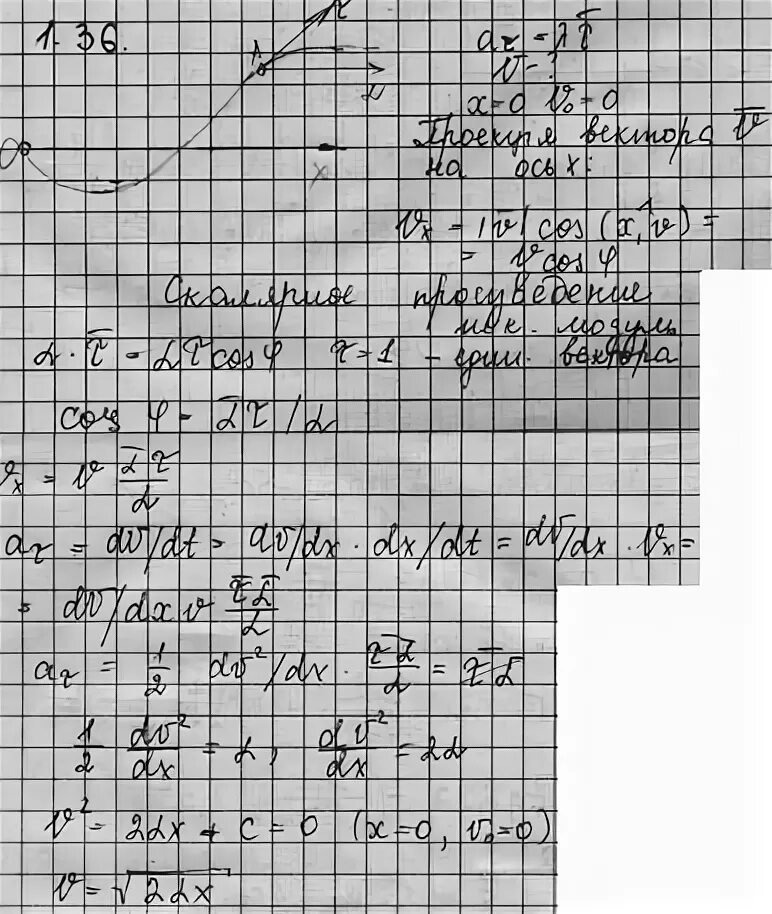 1.36.
τ
A
α
O
x
a_τ = λ τ̅
v = ?
x=0 v₀=0
Проекция вектора v̅
на ось x:
v_x = |v| cos (x,^v) =
= v cos φ
Скалярное произведение
иск. модуль
α · τ̅ = ατ cos φ τ=1 - един. вектора
cos φ = α̅τ / α
v_x = v α̅τ/α
a_τ = dv/dt = dv/dx · dx/dt = dv/dx · v_x =
= dv/dx v τ̅α̅/α
a_τ = 1/2 dv²/dx · τ̅α̅/α = τ̅α̅
1/2 dv²/dx = α, dv²/dx = 2α
v² = 2αx + c = 0 (x=0, v₀=0)
v = √2αx